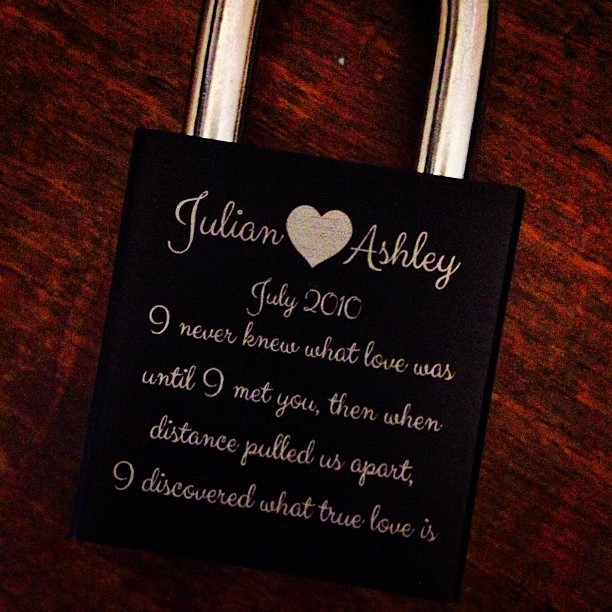 Julian ♥ Ashley
July 2010
I never knew what love was
until I met you, then when
distance pulled us apart,
I discovered what true love is